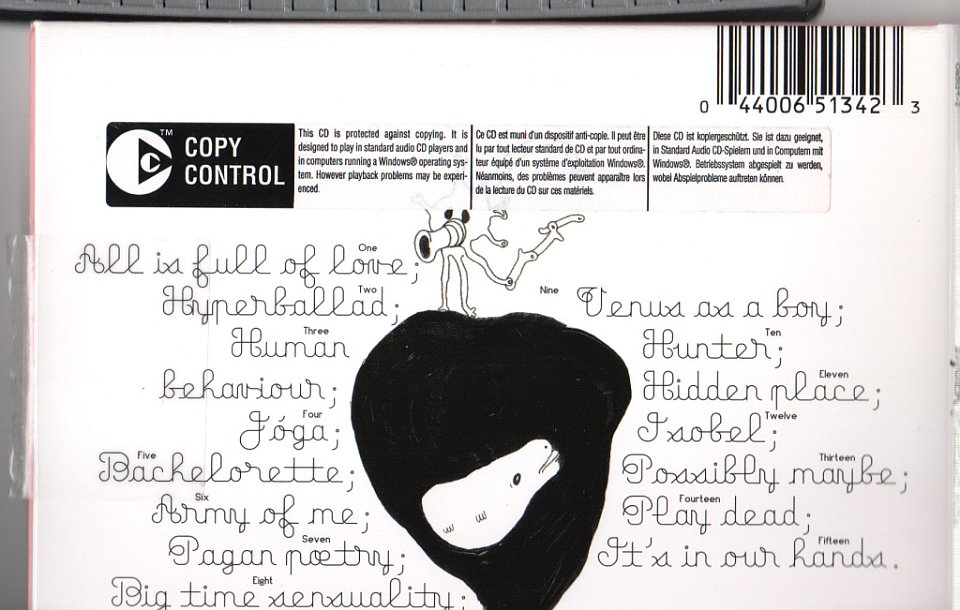 0 44006 51342 3
™
COPY
CONTROL
This CD is protected against copying. It is
designed to play in standard audio CD players and
in computers running a Windows® operating sys-
tem. However playback problems may be experi-
enced.
Ce CD est muni d'un dispositif anti-copie. Il peut être
lu par tout lecteur standard de CD et par tout ordina-
teur équipé d'un système d'exploitation Windows®.
Néanmoins, des problèmes peuvent apparaître lors
de la lecture du CD sur ces matériels.
Diese CD ist kopiergeschützt. Sie ist dazu geeignet,
in Standard Audio CD-Spielern und in Computern mit
Windows®. Betriebssystem abgespielt zu werden,
wobei Abspielprobleme auftreten können.
One
All is full of love;
Two
Hyperballad;
Three
Human
behaviour;
Four
Jóga;
Five
Bachelorette;
Six
Army of me;
Seven
Pagan pœtry;
Eight
Big time sensuality;
Nine
Venus as a boy;
Ten
Hunter;
Eleven
Hidden place;
Twelve
Isobel;
Thirteen
Possibly maybe;
Fourteen
Play dead;
Fifteen
It's in our hands.